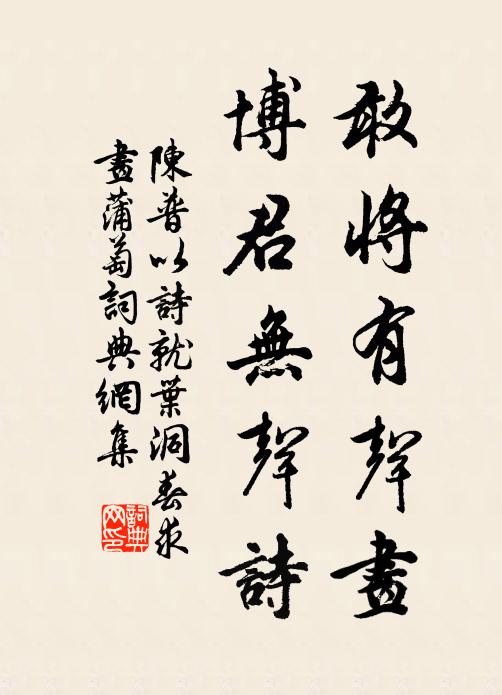 敢將有聲畫
博君無聲詩
陳普以詩就葉洞春求
畫蒲萄詞典網集
詞典
网印